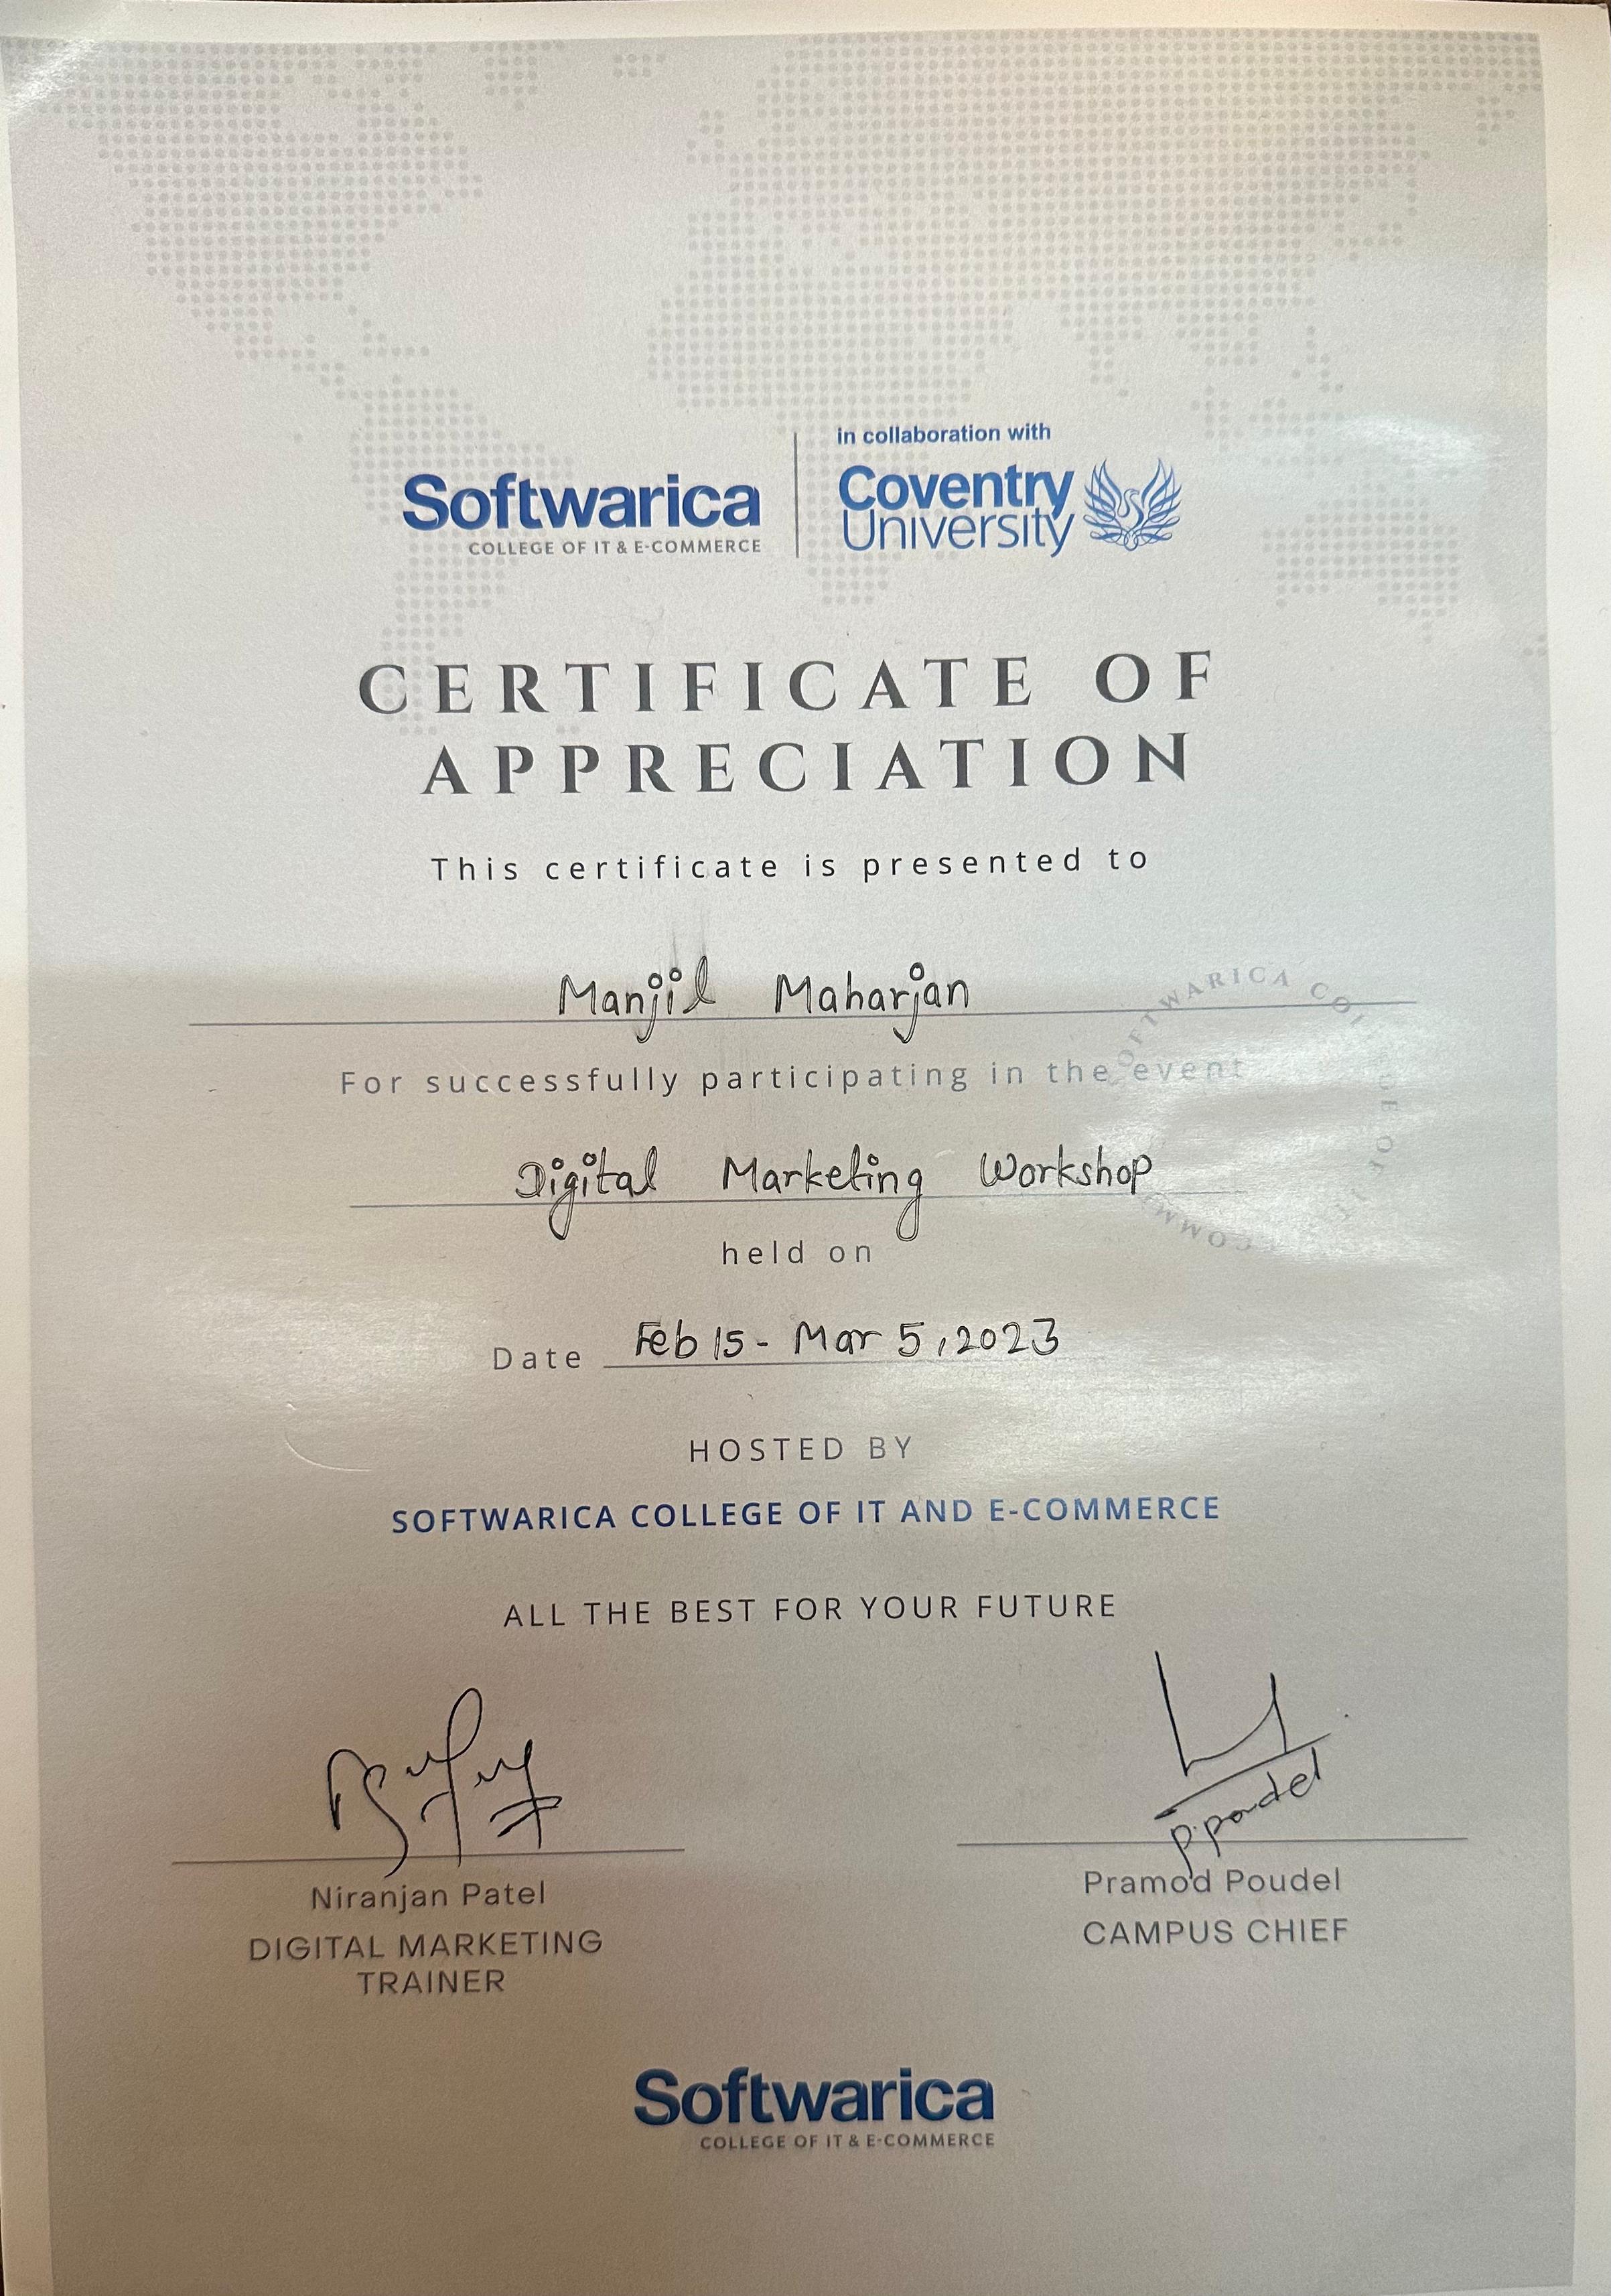 in collaboration with
Softwarica
COLLEGE OF IT & E-COMMERCE
Coventry
University
CERTIFICATE OF
APPRECIATION
This certificate is presented to
Manjil Maharjan
For successfully participating in the event
Digital Marketing Workshop
held on
Date Feb 15 - Mar 5, 2023
HOSTED BY
SOFTWARICA COLLEGE OF IT AND E-COMMERCE
ALL THE BEST FOR YOUR FUTURE
P.Poudel
Niranjan Patel
DIGITAL MARKETING
TRAINER
Pramod Poudel
CAMPUS CHIEF
Softwarica
COLLEGE OF IT & E-COMMERCE